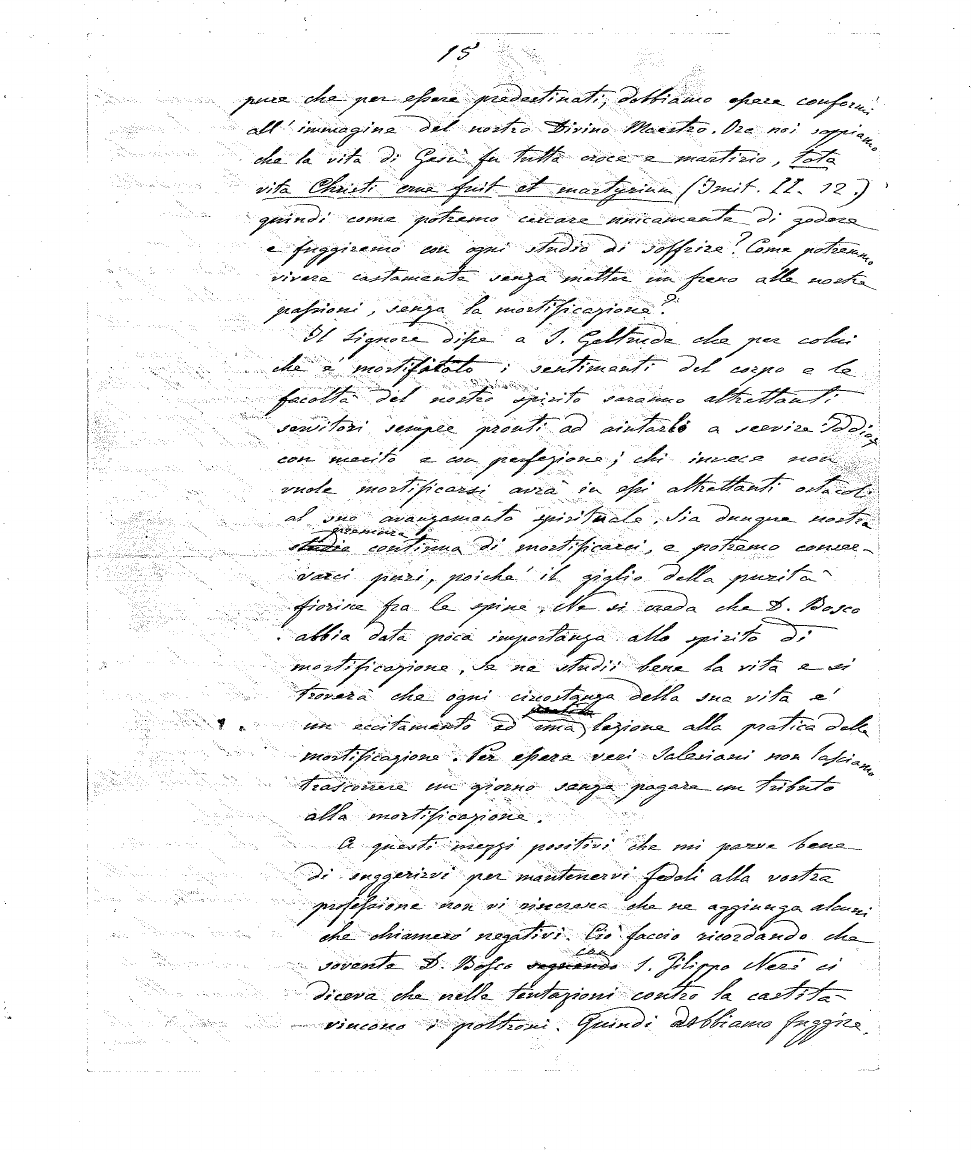 15
pure che per essere predestinati, dobbiamo essere conformi
all' immagine del nostro Divino Maestro. Ora noi sappiamo
che la vita di Gesù fu tutta croce e martirio, tota
vita Christi crux fuit et martyrium (Imit. II. 12.)
quindi come potremo cercare unicamente di godere
e fuggiremo con ogni studio di soffrire? Come potremmo
vivere castamente senza metter un freno alle nostre
passioni, senza la mortificazione?
Il Signore disse a S. Geltruda che per colui
che è mortificato i sentimenti del corpo e le
facoltà del nostro spirito saranno altrettanti
servitori sempre pronti ad aiutarlo a servire Iddio
con merito e con perfezione; chi invece non
vuole mortificarsi avrà in essi altrettanti ostacoli
al suo avanzamento spirituale. Sia dunque nostra
premura
studio continua di mortificarci, e potremo conser-
varci puri, poiché il giglio della purità
fiorisce fra le spine. Ne si creda che D. Bosco
abbia data poca importanza allo spirito di
mortificazione. Se ne studii bene la vita e si
troverà che ogni circostanza della sua vita è
un eccitamento ed una lezione alla pratica della
mortificazione. Per essere veri Salesiani non lasciamo
trascorrere un giorno senza pagare un tributo
alla mortificazione.
A questi mezzi positivi che mi parve bene
di suggerirvi per mantenervi fedeli alla vostra
professione non vi rincresca che ne aggiunga alcuni
che chiamerò negativi. Ciò faccio ricordando che
con
sovente D. Bosco seguendo S. Filippo Neri ci
diceva che nelle tentazioni contro la castità
vincono i poltroni. Quindi dobbiamo fuggire